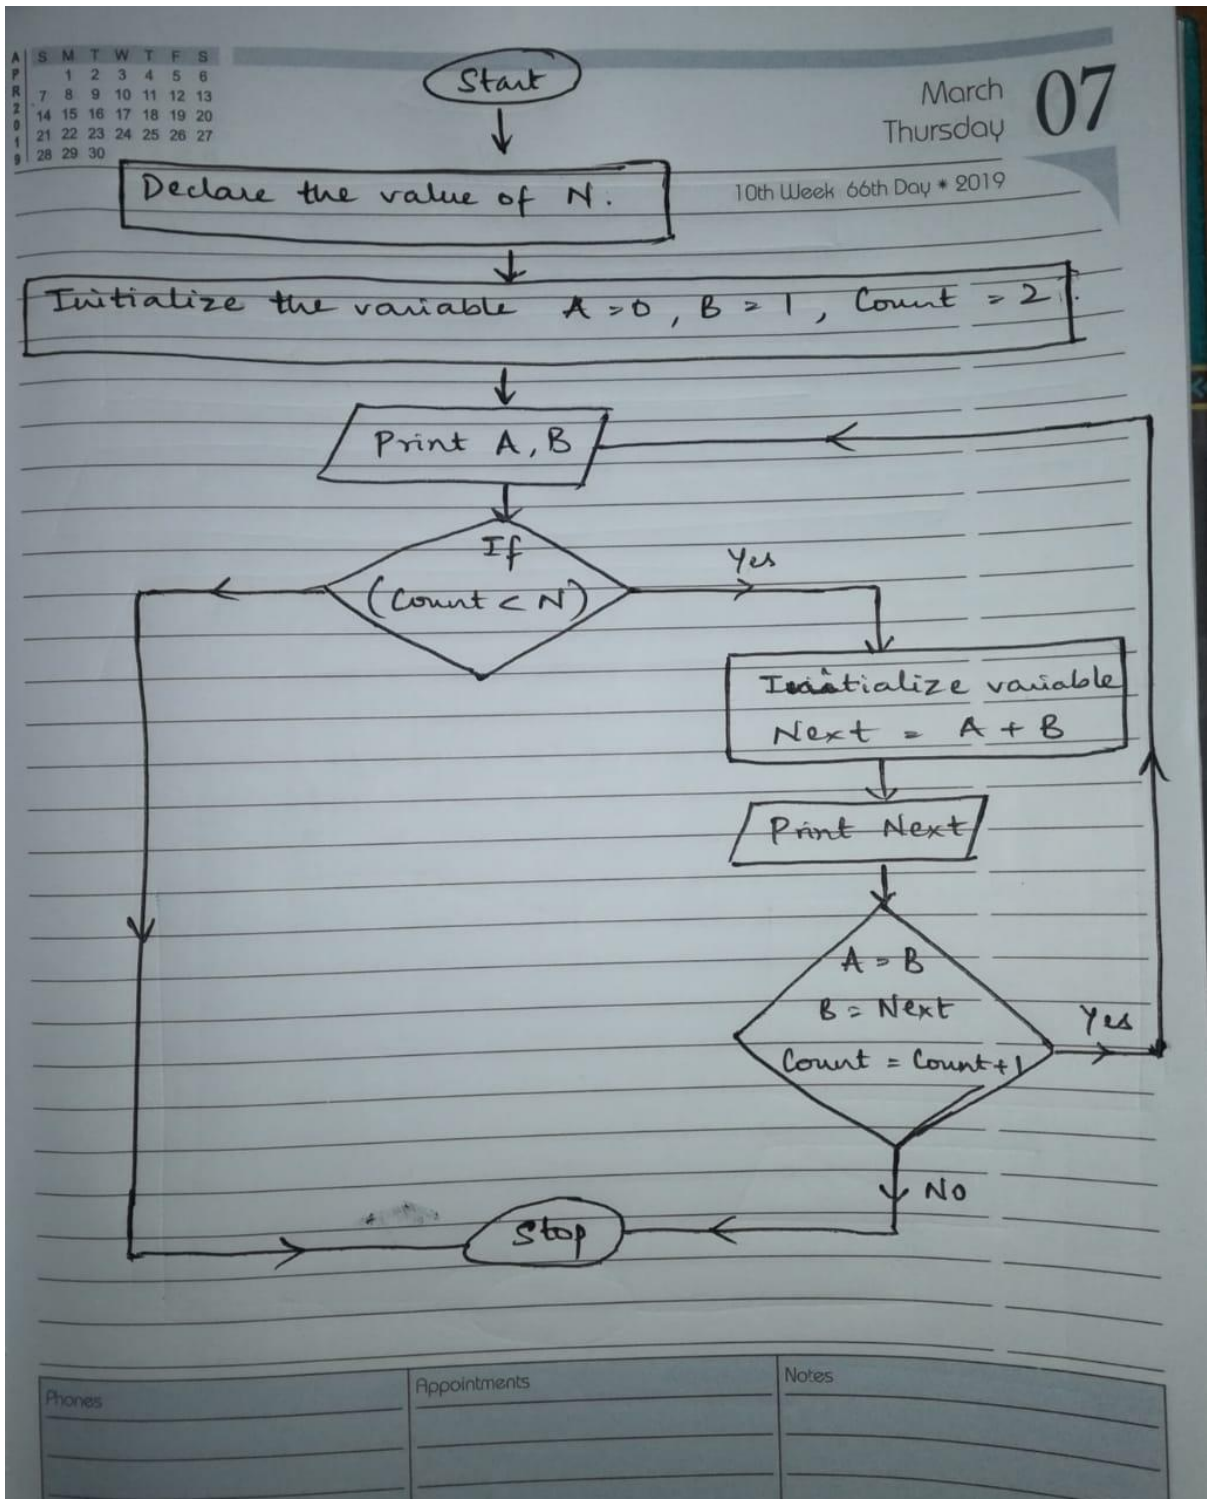 APR 2019
S M T W T F S
1 2 3 4 5 6
7 8 9 10 11 12 13
14 15 16 17 18 19 20
21 22 23 24 25 26 27
28 29 30
March 07
Thursday
10th Week 66th Day * 2019
Start
Declare the value of N.
Initialize the variable A = 0, B = 1, Count = 2.
Print A, B
If
(Count < N)
Yes
Initialize variable
Next = A + B
Print Next
A = B
B = Next
Count = Count + 1
Yes
No
Stop
Phones
Appointments
Notes